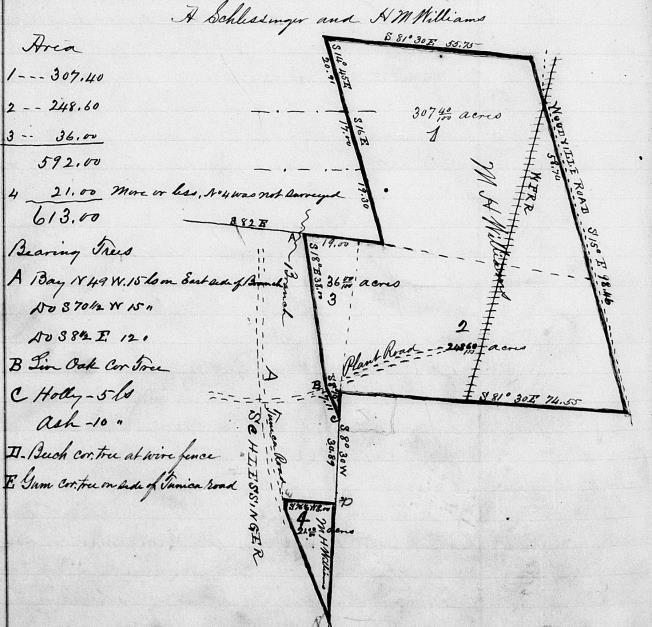 A Schlessinger and H M Williams
Area
1 --- 307.40
2 -- 248.60
3 -- 36.00
592.00
4 21.00 More or less, No 4 was not surveyed
613.00
Bearing Trees
A Bay N 49 W. 15 ls on East side of Branch
Do S 70 1/2 W 15 "
Do S 8 1/2 E 12 "
B Live Oak Cor Tree
C Holly - 5 ls
Ash - 10 "
D - Beech cor. tree at wire fence
E Gum cor. tree on side of Tunica road
S 81° 30 E 55.75
S 14° 45 E
20.91
S 16 E
17.00
19.30
307 40/100 acres
1
WOODVILLE ROAD S 15° E 98.46
58.70
M H Williams
S 82 E
A
19.00
Branch
S 8° E 38.00
36 00/100 acres
3
2
248 60/100 acres
Plant Road
B
S 81° 30 E 74.55
A
SCHLESSINGER
Tunica Road
S 8° 30 W
30.89
4
21 00/100 acres
M H Williams